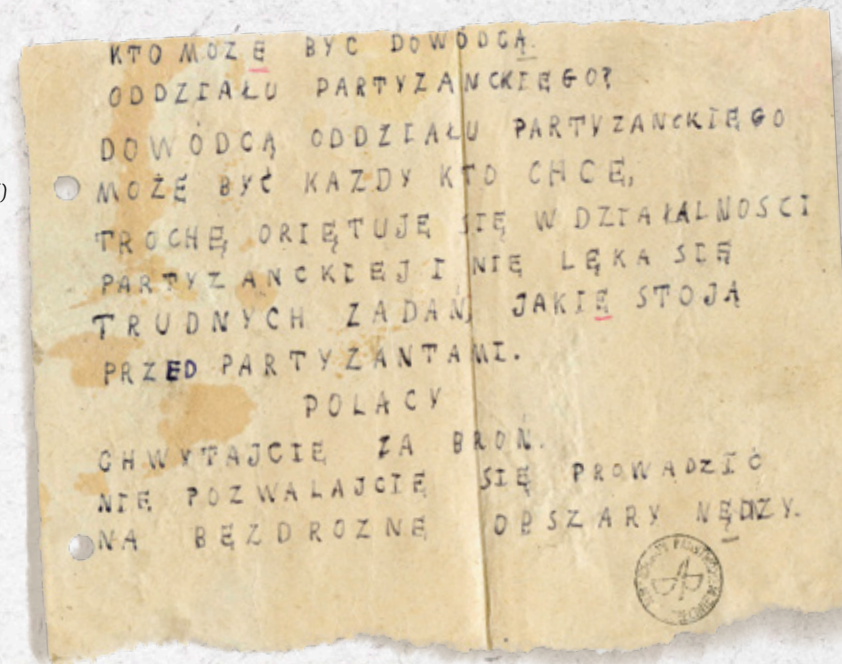 KTO MOZĘ BYC DOWÓDCĄ.
ODDZIAŁU PARTYZANCKIĘGO?
DOWÓDCĄ ODDZIAŁU PARTYZANCKIĘGO
MOŻĘ BYĆ KAZDY KTO CHCĘ,
TROCHĘ ORIĘTUJĘ SIĘ W DZIAŁALNOSCI
PARTYZANCKIEJ I NIĘ LĘKA SIĘ
TRUDNYCH ZADAŃ, JAKIĘ STOJĄ
PRZED PARTYZANTAMI.
POLACY
CHWYTAJCIĘ ZA BROŃ.
NIĘ POZWALAJCIĘ SIĘ PROWADZIĆ
NA BĘZDROZNĘ OBSZARY NĘDZY.